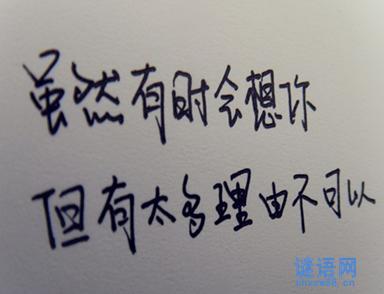 虽然有时会想你
但有太多理由不可以
谜语网